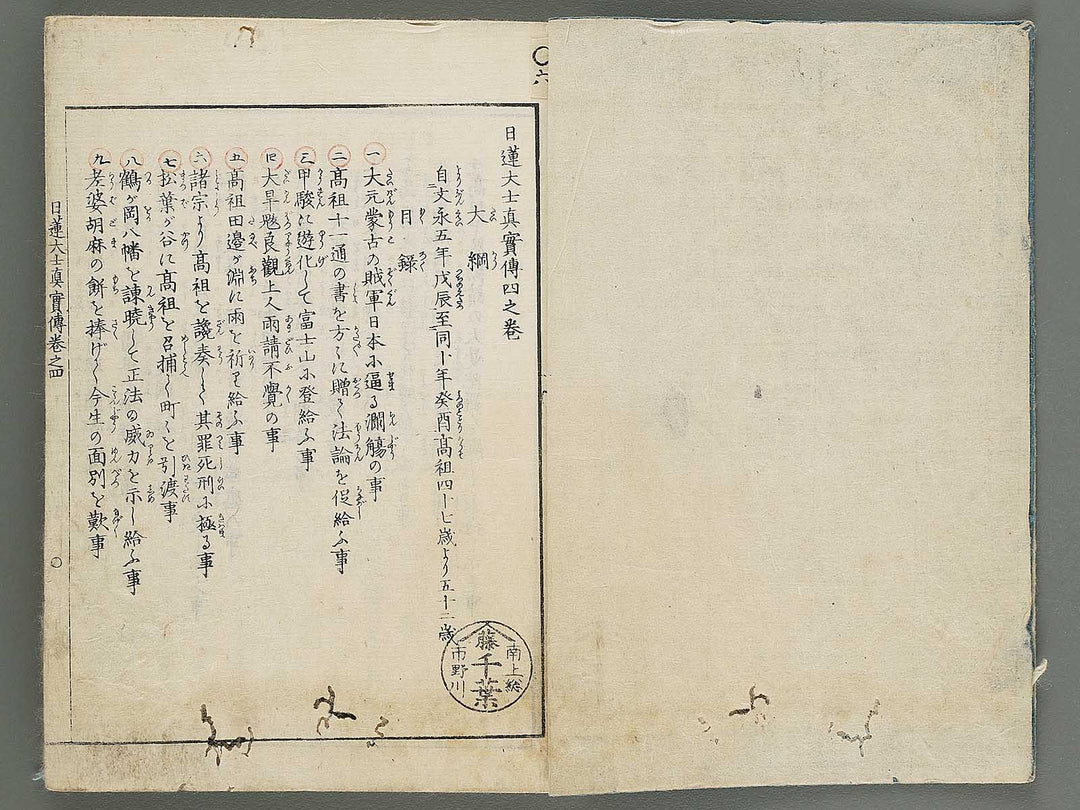 日蓮大士真實傳四之卷
大綱
自文永五年戊辰至同十年癸酉髙祖四十七歳より五十二歳
目録
一 大元蒙古の賊軍日本に逼る濫觴の事
二 髙祖十一通の書を方々に贈て法論を促給ふ事
三 甲駿に遊化して富士山に登給ふ事
四 大旱魃良觀上人雨請不覺の事
五 髙祖田邉が淵に雨を祈り給ふ事
六 諸宗より髙祖を讒奏して其罪死刑に極る事
七 松葉が谷に髙祖を召捕て町々を引渡事
八 鶴が岡八幡を諌暁して正法の威力を示し給ふ事
九 老婆胡麻の餅を捧げて今生の面別を歎事
日蓮大士真實傳卷之四
六
南上総
藤
千葉
市野川